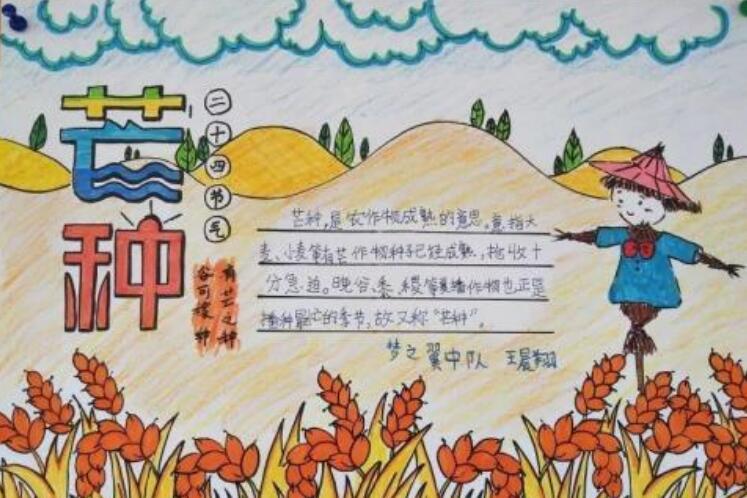 芒种
二十四节气
有芒之种
谷可稼种
芒种,是农作物成熟的意思。意指大
麦、小麦等有芒作物种子已经成熟,抢收十
分急迫。晚谷、黍、稷等夏播作物也正是
播种最忙的季节,故又称“芒种”。
梦之翼中队 王晨翔